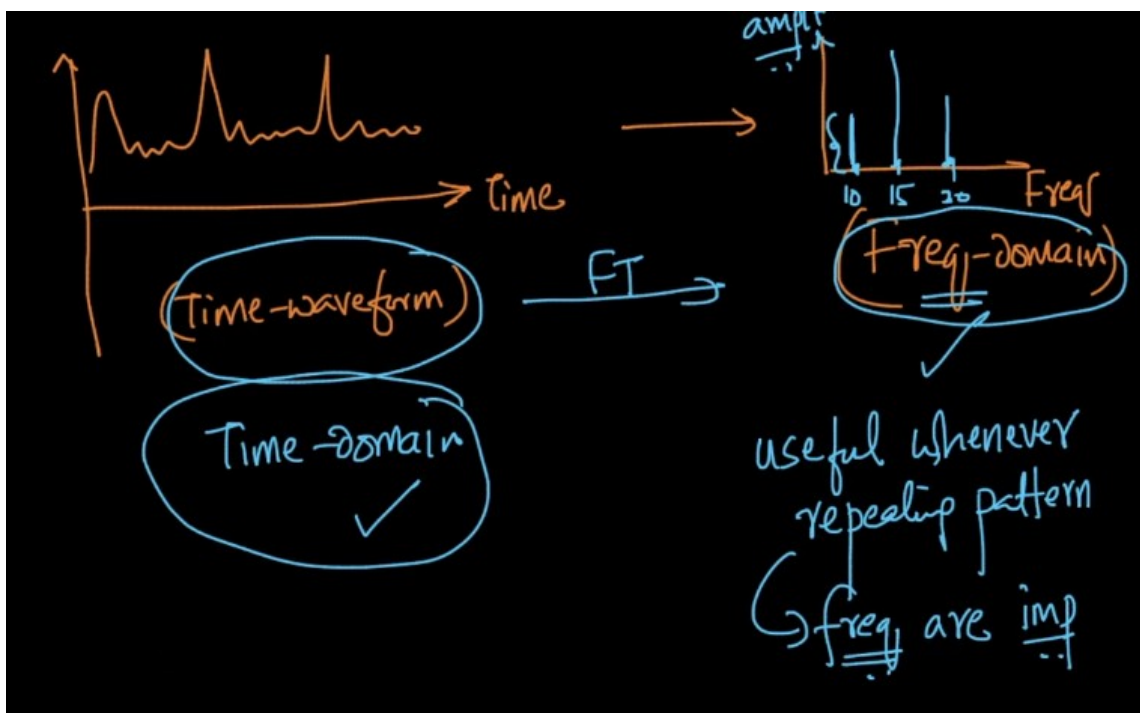 Time
(Time-waveform)
Time-domain
FT
ampli
10 15 20
Freq
(freq-domain)
useful whenever
repeating pattern
freq are imp